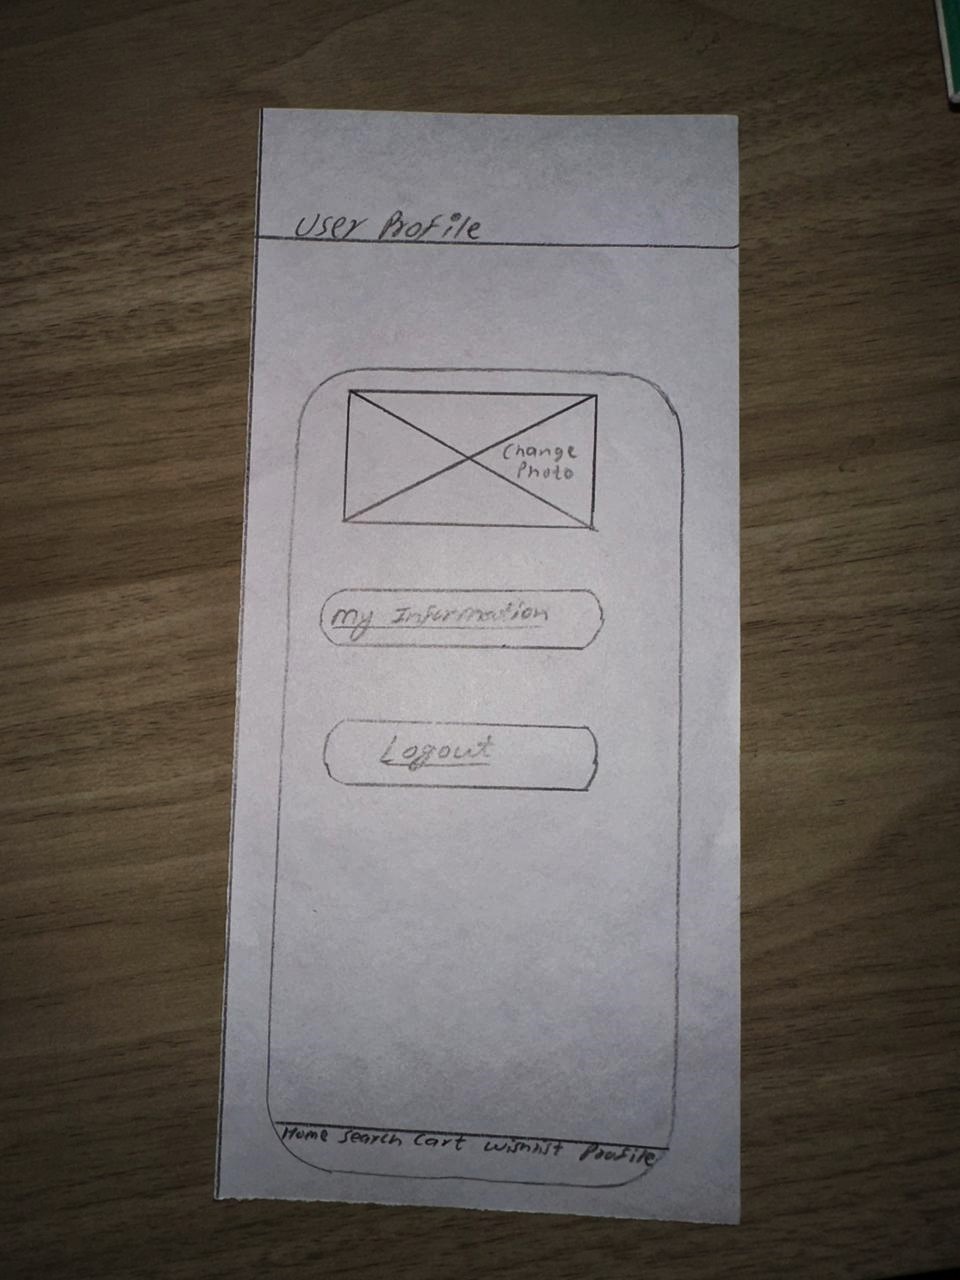 User Profile
Change
Photo
My Information
Logout
Home Search Cart Wishlist Profile